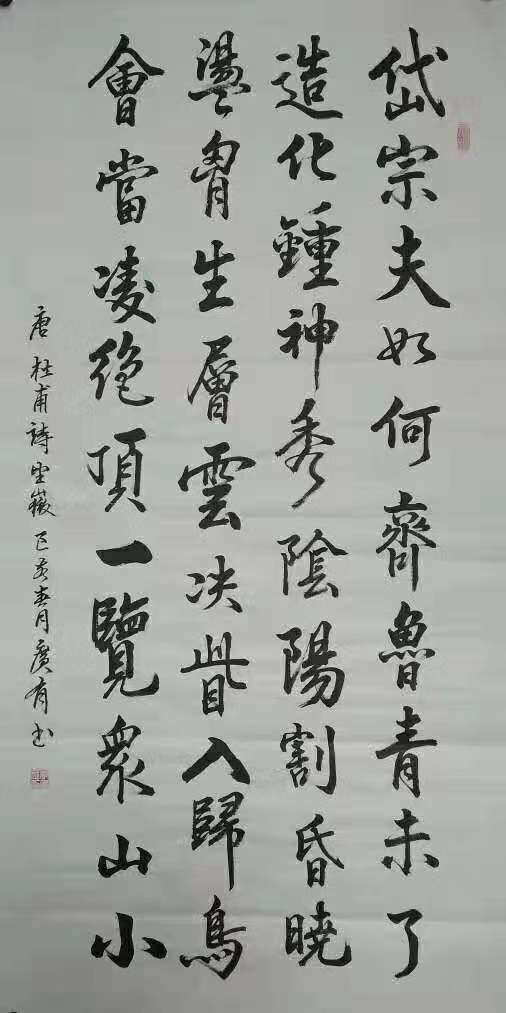 岱宗夫如何齊魯青未了
造化鍾神秀陰陽割昏曉
盪胷生層雲决眥入歸鳥
會當凌絶頂一覽衆山小
唐杜甫詩望嶽己亥春月廣有书